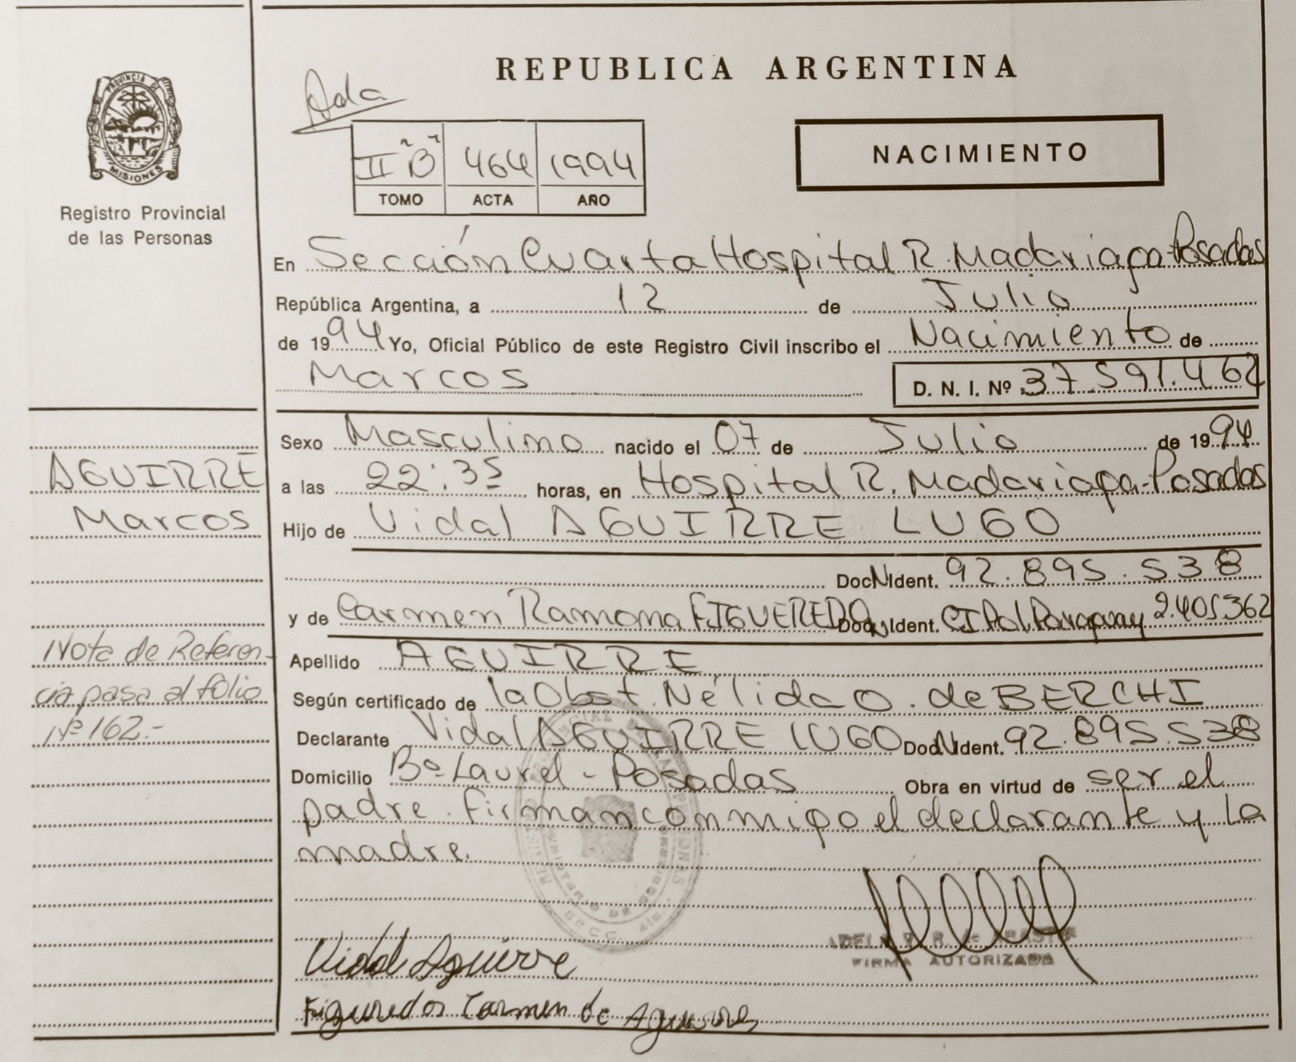 REPUBLICA ARGENTINA
Ada
PROVINCIA DE MISIONES
II "B" 464 1994
TOMO ACTA AÑO
NACIMIENTO
Registro Provincial
de las Personas
En Sección Cuarta Hospital R. Madariaga-Posadas
República Argentina, a 12 de Julio
de 1994 Yo, Oficial Público de este Registro Civil inscribo el Nacimiento de
Marcos D. N. I. Nº 37.591.462
Sexo Masculino nacido el 07 de Julio de 1994
a las 22:35 horas, en Hospital R. Madariaga-Posadas
Hijo de Vidal AGUIRRE LUGO
Doc. N. Ident. 92.895.538
y de Carmen Ramona FIGUEREDO Doc. Ident. CI Pol. Paraguay 2.405362
Apellido AGUIRRE
Según certificado de la Obst. Nélida O. de BERCHI
Declarante Vidal AGUIRRE LUGO Doc. N. Ident. 92.895.538
Domicilio Bº Laurel - Posadas Obra en virtud de ser el
padre. Firman conmigo el declarante y la
madre.
AGUIRRE
Marcos
Nota de Referen-
cia pasa al folio
Nº 162.-
SECC. 4ta
FIRMA AUTORIZADA
Vidal Aguirre
Figueredos Carmen de Aguirre